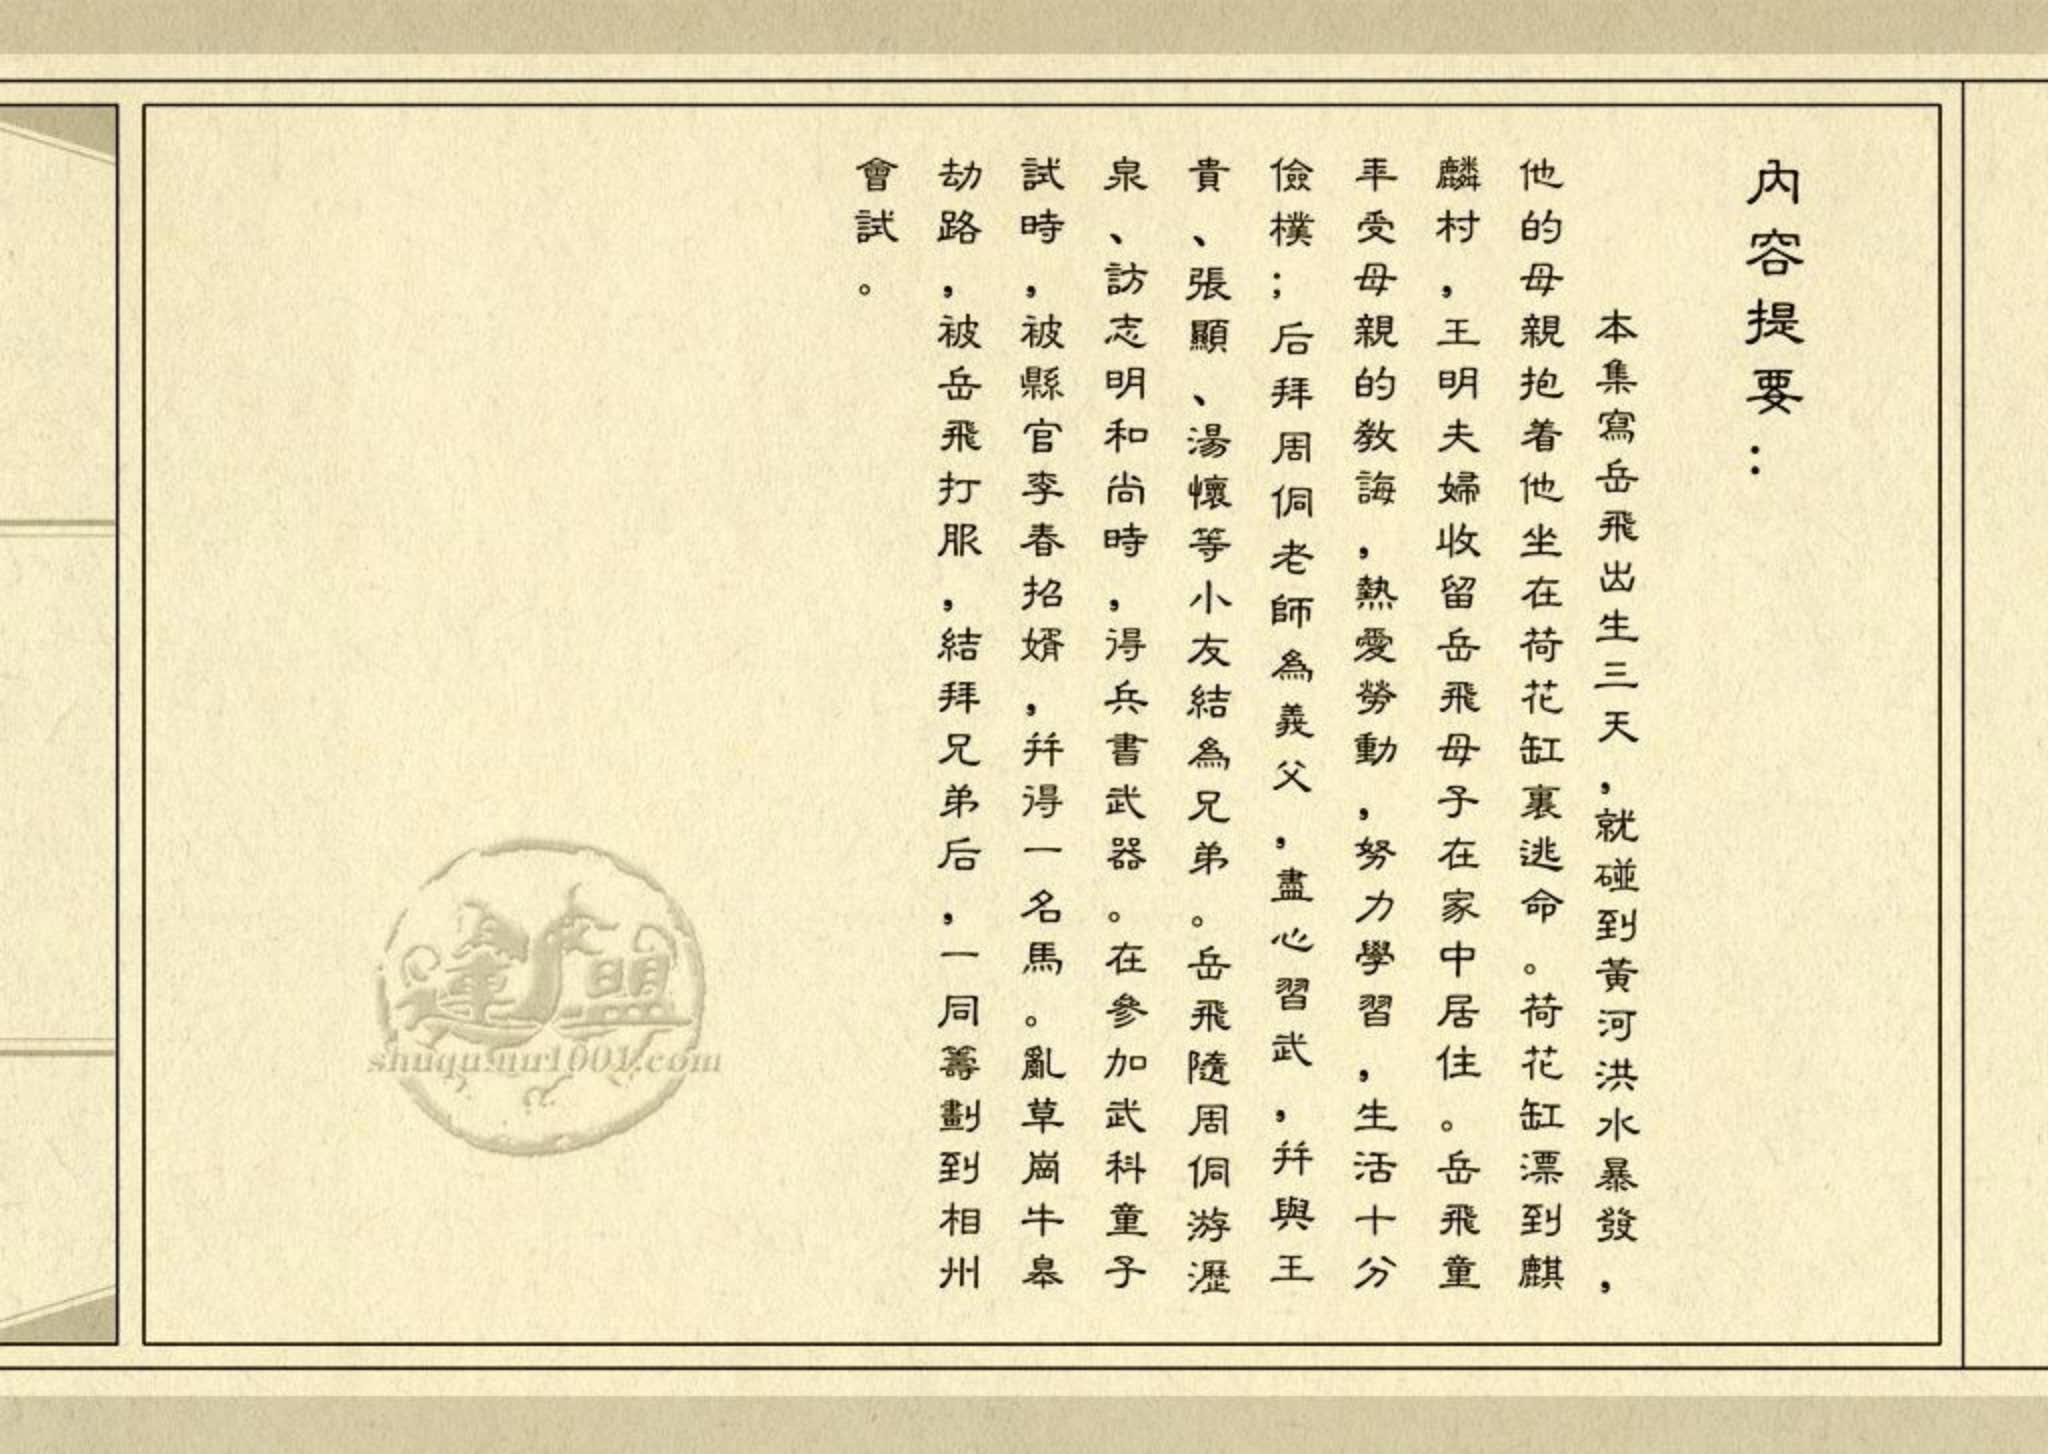 內容提要：
本集寫岳飛出生三天，就碰到黃河洪水暴發，
他的母親抱着他坐在荷花缸裏逃命。荷花缸漂到麒
麟村，王明夫婦收留岳飛母子在家中居住。岳飛童
年受母親的教誨，熱愛勞動，努力學習，生活十分
儉樸；后拜周侗老師為義父，盡心習武，并與王
貴、張顯、湯懷等小友結為兄弟。岳飛隨周侗游瀝
泉、訪志明和尚時，得兵書武器。在參加武科童子
試時，被縣官李春招婿，并得一名馬。亂草崗牛皋
劫路，被岳飛打服，結拜兄弟后，一同籌劃到相州
會試。
連盟